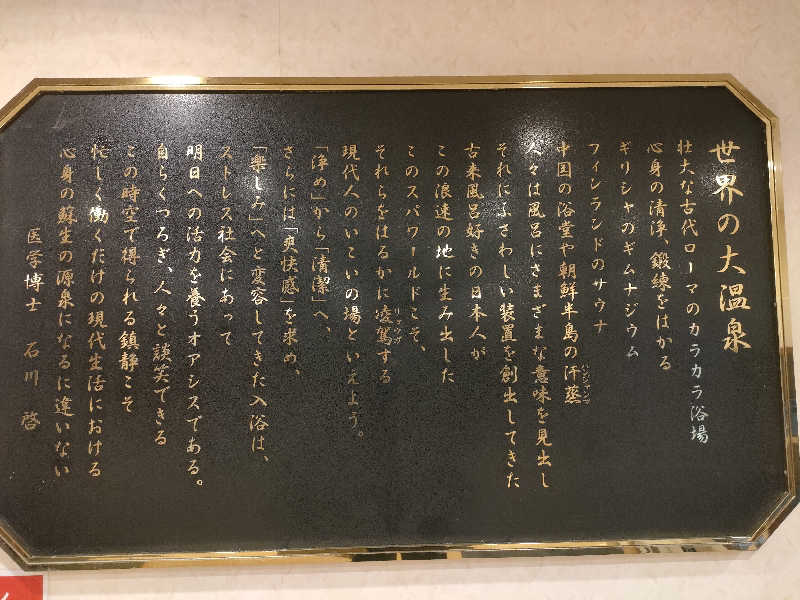 世界の大温泉
壮大な古代ローマのカラカラ浴場
心身の清浄、鍛練をはかる
ギリシャのギムナジウム
フィンランドのサウナ
中国の浴堂や朝鮮半島の汗蒸
人々は風呂にさまざまな意味を見出し
それにふさわしい装置を創出してきた
古来風呂好きの日本人が
この浪速の地に生み出した
このスパワールドこそ、
それらをはるかに凌駕する
現代人のいこいの場といえよう。
「浄め」から「清潔」へ、
さらには「爽快感」を求め、
「楽しみ」へと変容してきた入浴は、
ストレス社会にあって
明日への活力を養うオアシスである。
自らくつろぎ、人々と談笑できる
この時空で得られる鎮静こそ
忙しく働くだけの現代生活における
心身の蘇生の源泉になるに違いない
医学博士 石川 啓